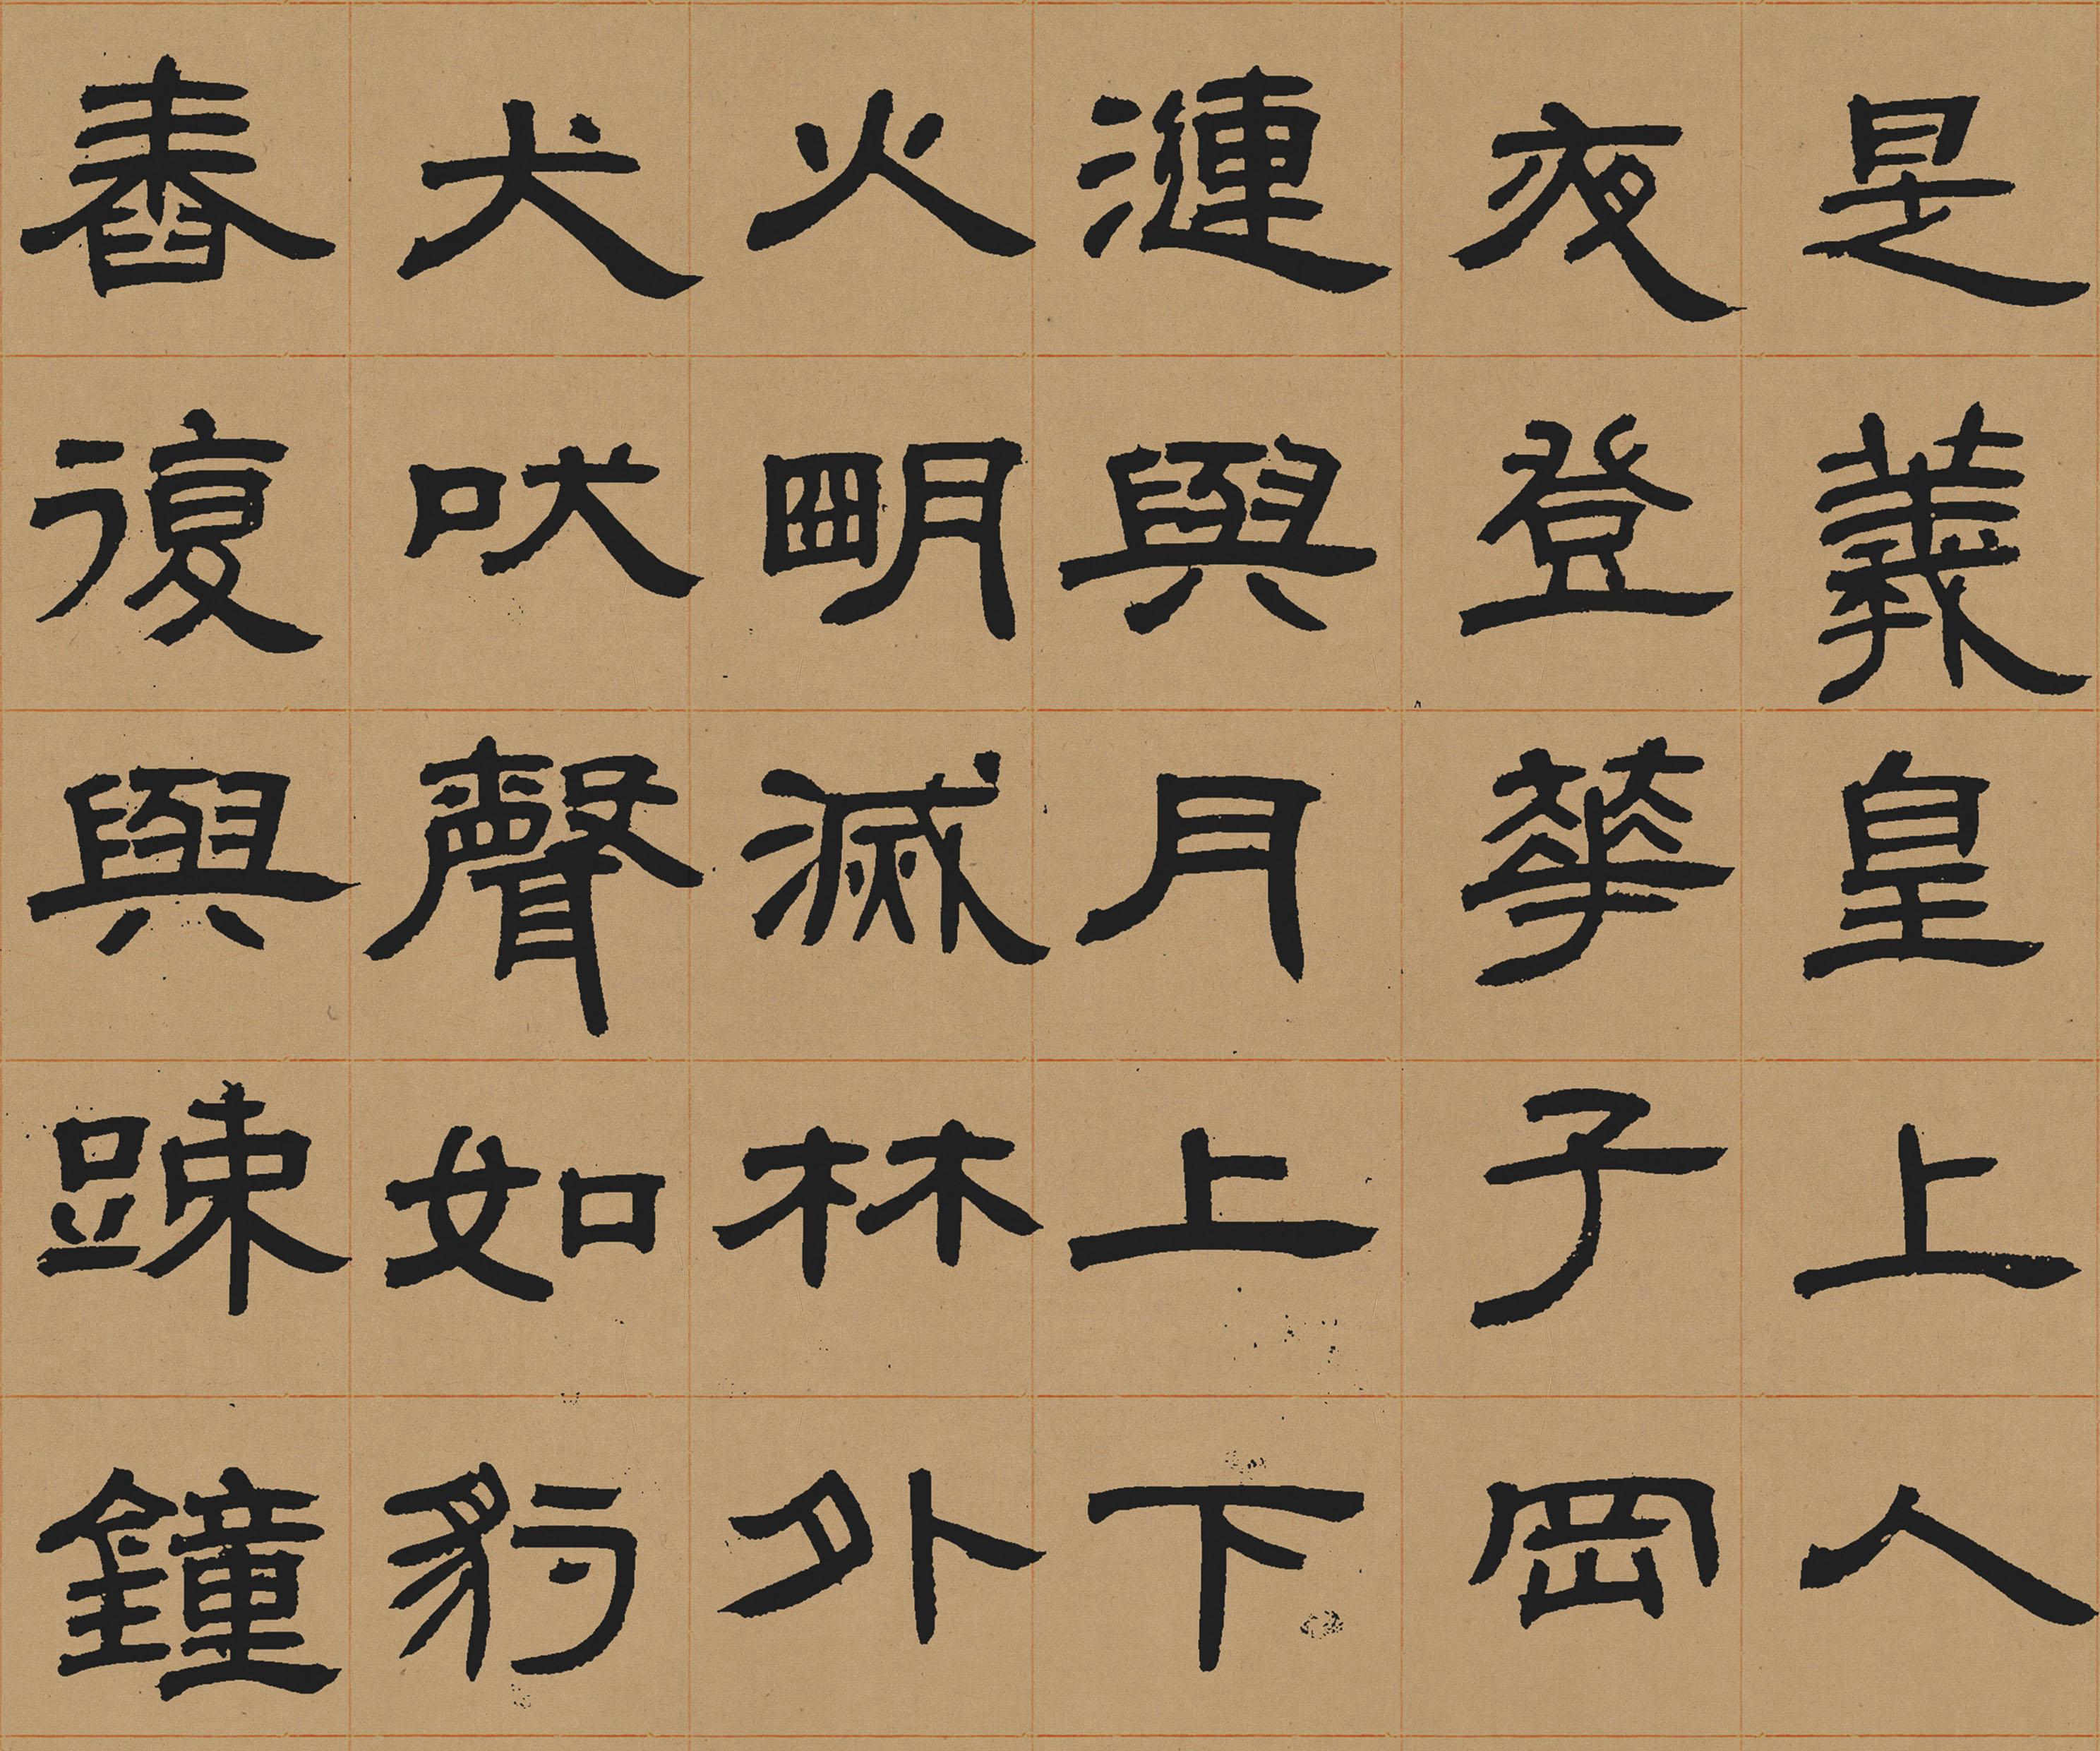 是羲皇上人
夜登華子岡
漣與月上下
火明滅林外
犬吠聲如豹
舂復與踈鐘